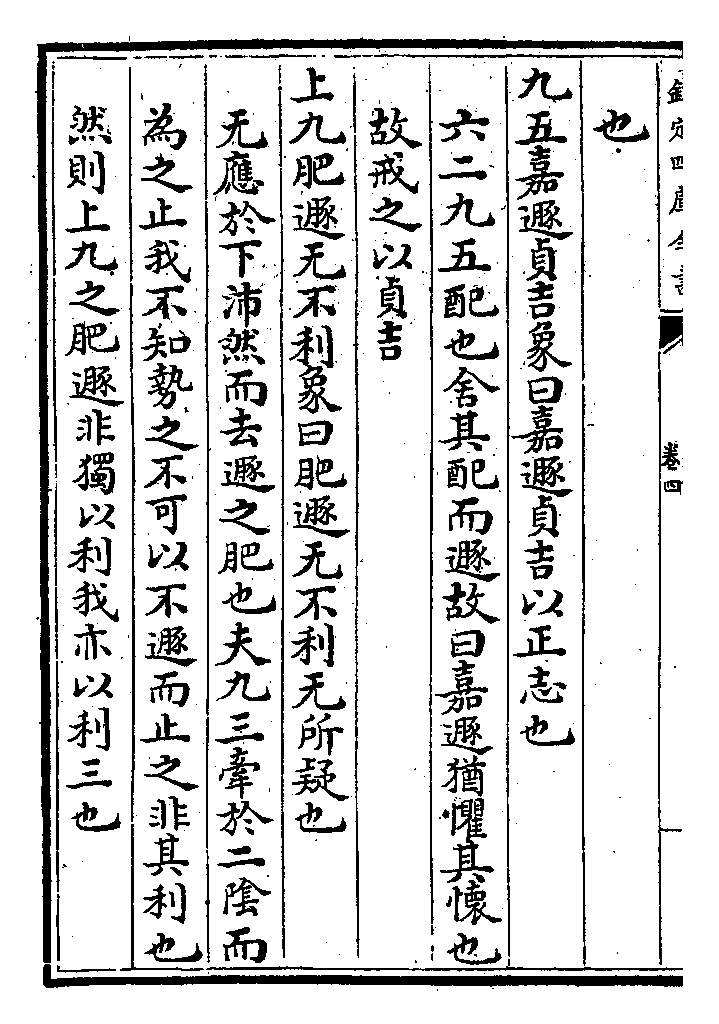 欽定四庫全書
卷四
也
九五嘉遯貞吉象曰嘉遯貞吉以正志也
六二九五配也舍其配而遯故曰嘉遯猶懼其懐也
故戒之以貞吉
上九肥遯无不利象曰肥遯无不利无所疑也
无應於下沛然而去遯之肥也夫九三牽於二隂而
為之止我不知勢之不可以不遯而止之非其利也
然則上九之肥遯非獨以利我亦以利三也